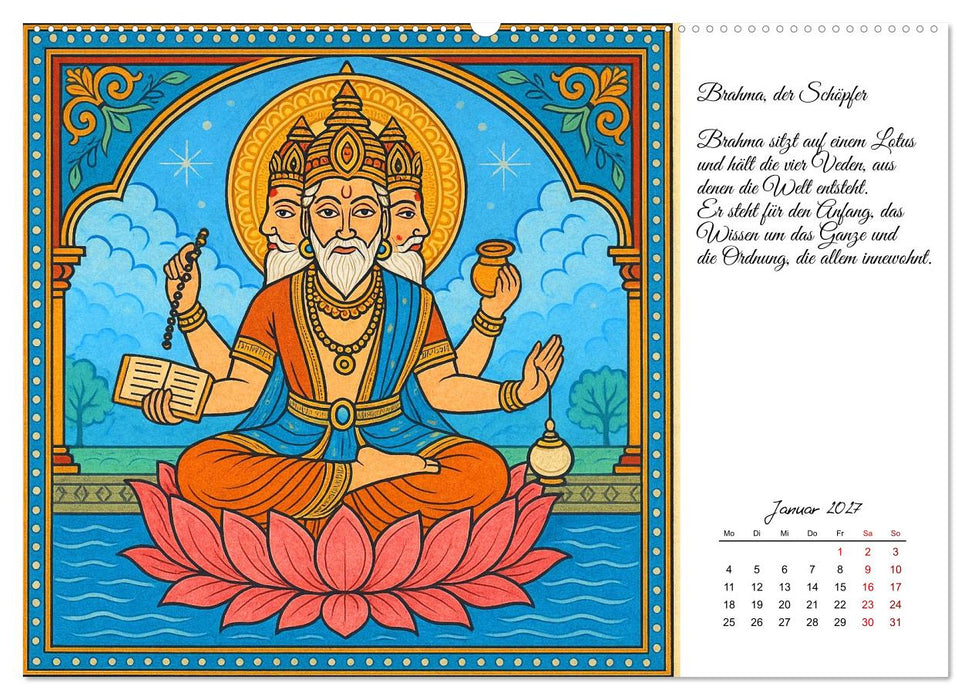 Brahma, der Schöpfer
Brahma sitzt auf einem Lotus
und hält die vier Veden, aus
denen die Welt entsteht.
Er steht für den Anfang, das
Wissen um das Ganze und
die Ordnung, die allem innewohnt.
Januar 2027
Mo Di Mi Do Fr Sa So
1 2 3
4 5 6 7 8 9 10
11 12 13 14 15 16 17
18 19 20 21 22 23 24
25 26 27 28 29 30 31